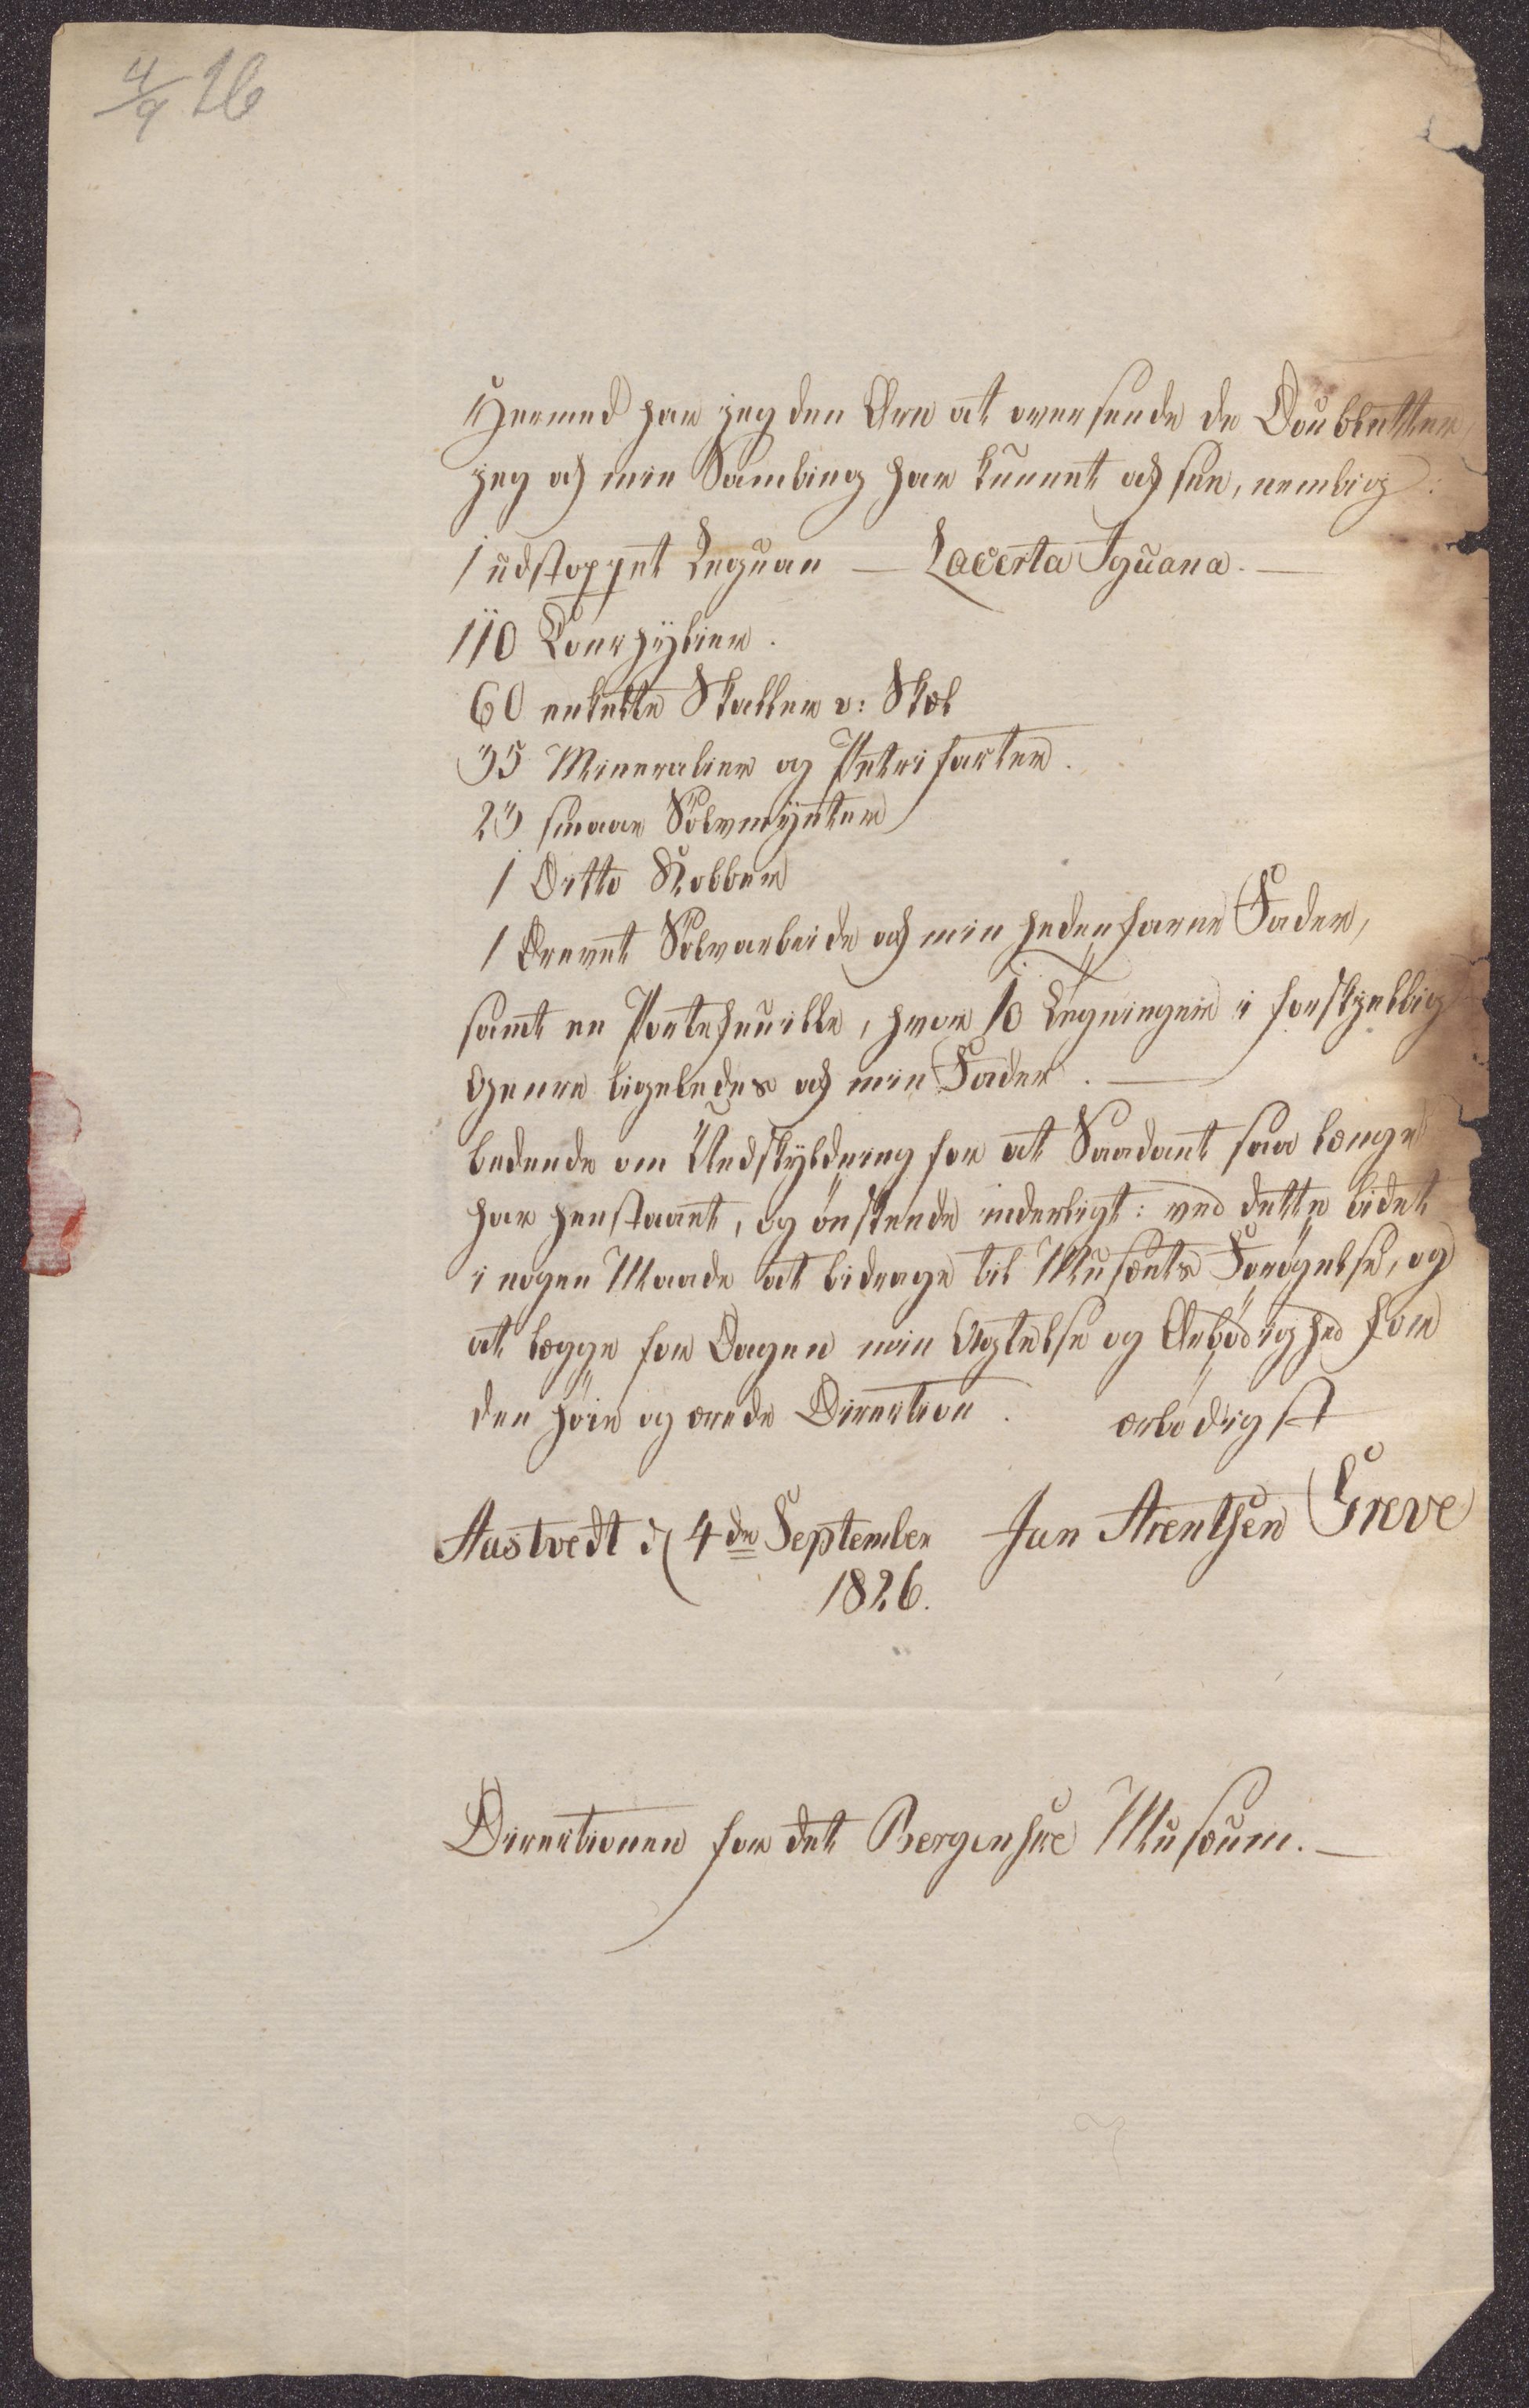 4/9 26
Hermed har jeg den Ære at oversende de Doubletter,
jeg af min Samling har kunnet af see, nemlig:
1 udstoppet Leguan — Lacerta Iguana. —
110 Conchylier.
60 enkelte Skaller v: Skæl
35 Mineralier og Petrifacter.
23 smaae Sölvmynter
1 Ditto Kobber
1 Drevet Sölvarbeide af min hedenfarne Fader,
samt en Portefeuille, hvor 10 Tegninger i forskjellig
Genre ligeledes af min Fader. —
bedende om Undskyldning for at Saadant saa længe
har henstaaet, og önskende inderligt: ved dette lidet
i nogen Maade at bidrage til Musæets Forögelse, og
at lægge for Dagen min Agtelse og Ærbödighed for
den höie og ærede Direction. ærbödigst
Aastvedt d 4de September Jan Arentsen Greve
1826.
Directionen for det Bergenske Musæum. —